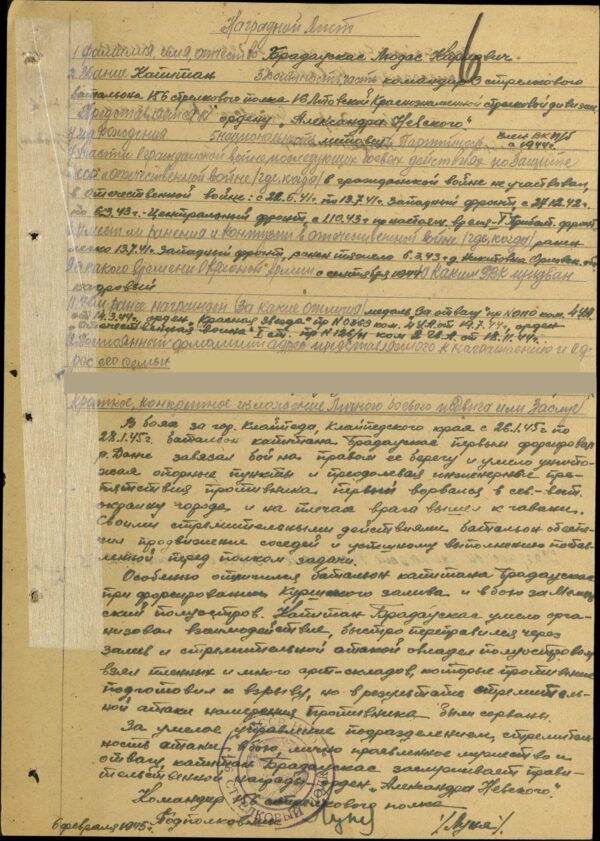 Наградной Лист
1 Фамилия имя отчество Брадаускас Людас Карлович
2. Звание Капитан 3 должность часть командир 3 стрелкового
батальона 156 стрелкового полка 16 Литовской Краснознаменной стрелковой дивизии.
Представляется к ордену „Александра Невского"
рождения национальность литовец Партийность член ВКП/б с 1944 г.
Участие в гражданской войне последующих боевых действиях по защите
СССР отечественной войне (где, когда) в гражданской войне не участвовал,
в отечественной войне: с 22.6.41г. по 13.7.41г. Западный фронт, с 27.12.42г.
по 6.3.43г. Центральный фронт, с 1.10.43г. по настоящ. время I Прибалт. фронт.
ли ранения и контузии в отечественной войне (где, когда) ранен
легко 13.7.41г. Западный фронт, ранен тяжело 6.3.43г. д. Никитовка Орловск. обл.
с какого времени в Красной Армии с сентября каким РВК призван
кадровый
Чем ранее награжден (за какие отличия) медаль „За отвагу" пр. ком. 4 УА
от 14.3.44г., орден „Красная Звезда" пр. № 0363 ком. 4 УА от 19.7.44г., орден
„Отечественная Война" I ст. пр. ком. 2 гв. А. от 18.11.44г.
Постоянный домашний адрес представляемого к награждению и ад-
рес его семьи
Краткое, конкретное изложение личного боевого подвига или заслуг
В боях за гор. Клайпеда, Клайпедского края с 26.1.45г. по
28.1.45г. батальон капитана Брадаускас первым форсировал
р. Дане завязал бой на правом ее берегу и умело уничто-
жая опорные пункты и преодолевая инженерные пре-
пятствия противника первый ворвался в сев.-вост.
окраину города и на плечах врага вышел к гавани.
Своими стремительными действиями батальон обеспе-
чил продвижение соседей и успешному выполнению постав-
ленной перед полком задачи.
Особенно отличился батальон капитана Брадаускас
при форсировании Куршского залива и в бою за
ский полуостров. Капитан Брадаускас умело орга-
низовал взаимодействие, быстро переправился через
залив и стремительной атакой овладел полуостровом,
взял пленных и много арт-складов, которые противник
подготовил к взрыву, но в результате стремитель-
ной атаки намерения противника были сорваны.
За умелое управление подразделением, стремитель-
ность атаки в бою, лично проявленное мужество и
отвагу, капитан Брадаускас заслуживает прави-
тельственной награды орден „Александра Невского".
Командир 156 стрелкового полка
Подполковник /Луня/.
6 февраля 1945г.